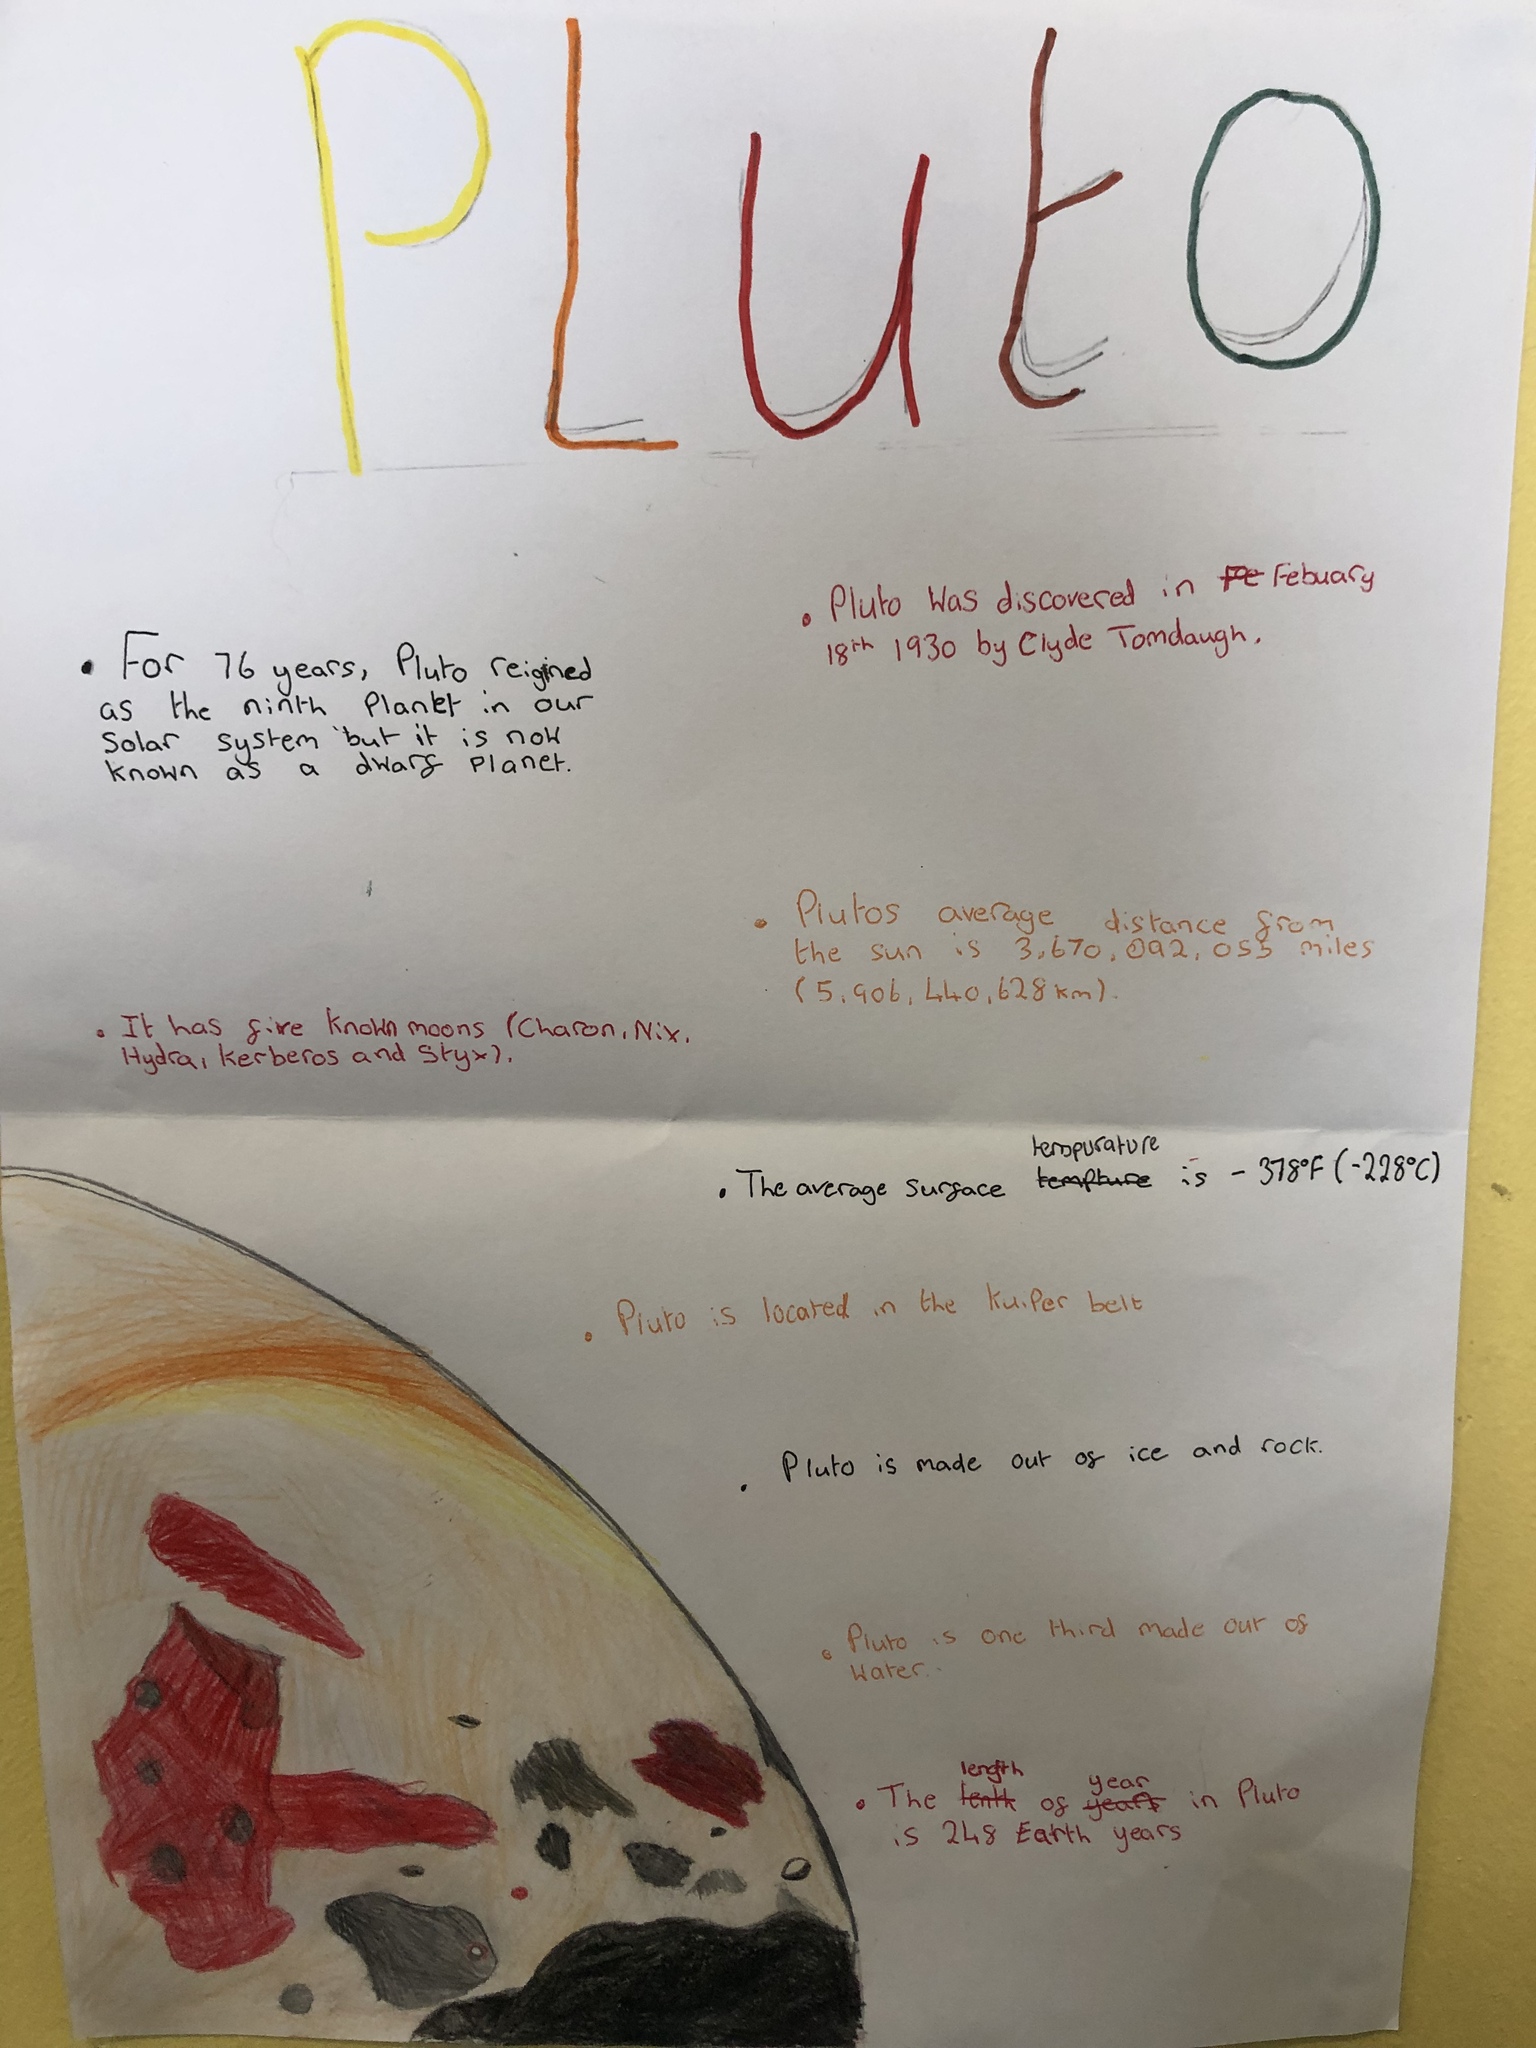 PLuto
• Pluto was discovered in Fe Febuary
18th 1930 by Clyde Tomdaugh.
• For 76 years, Pluto reigined
as the ninth Planet in our
Solar system but it is now
known as a dwarf planet.
• Plutos average distance from
the sun is 3,670,092,055 miles
(5,906,440,628km).
• It has five known moons (Charon, Nix,
Hydra, Kerberos and Styx).
tempurature
• The average surface tempture is - 378°F (-228°C)
• Pluto is located in the Kuiper belt
• Pluto is made out of ice and rock.
• Pluto is one third made out of
water.
length year
• The lenth of years in Pluto
is 248 Earth years